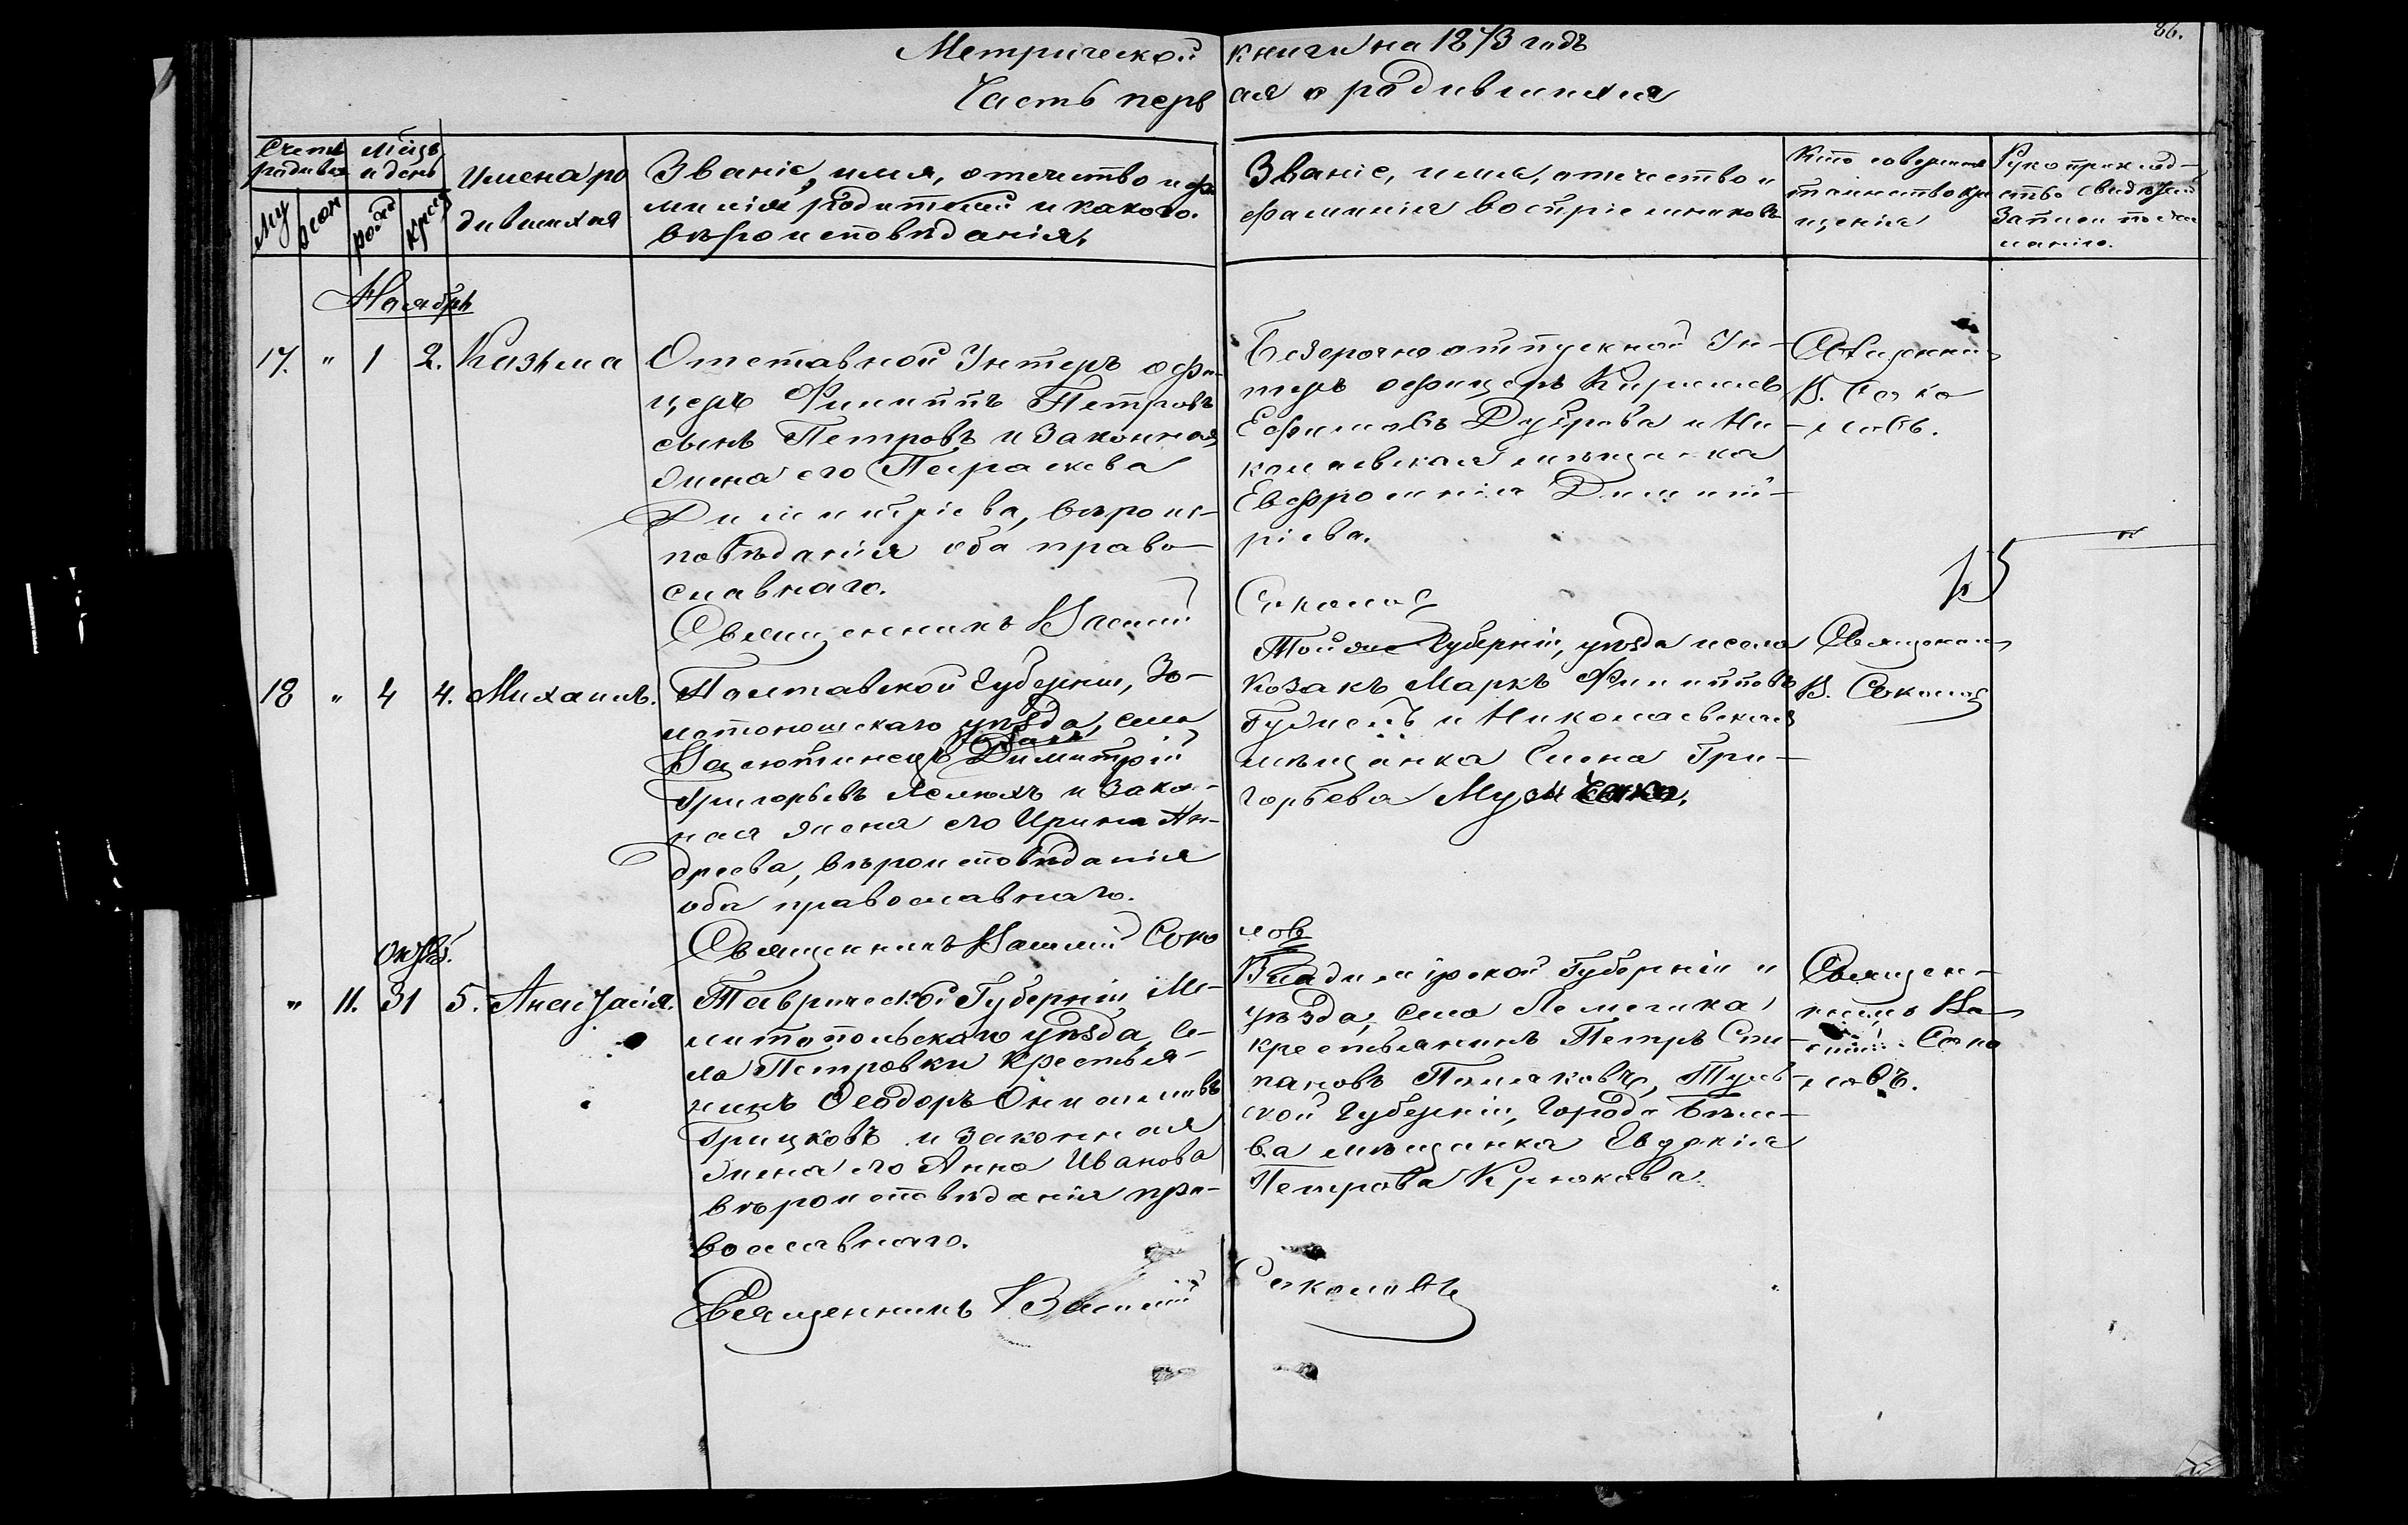 86.
Метрической книги на 1873 годъ
Часть первая о родившихся
Счетъ родивш.
Му
жен
Мѣцъ и день
рожд
крещ
Имена родившихся
Званіе, имя, отчество и фамилія родителей и какого вѣроисповѣданія.
Званіе, имя, отчество и фамилія воспріемниковъ
Кто совершал таинство крещенія
Рукоприкладство свидѣтелей записи по желанію.
Ноябрь
17. " 1 2. Казьма
Отставной Унтеръ офи-
церъ Филиппъ Петровъ
сынъ Петровъ и законная
жена его Параскева
Димитріева, вѣроис-
повѣданія оба право-
славнаго.
Безсрочноотпускной Ун-
теръ офицеръ Кириллъ
Ефимовъ Дуброва и Ни-
колаевская мѣщанка
Евфросинія Димит-
ріева.
Священни
В. Соко
ловъ.
Священникъ Василій Соколов
18 " 4 4. Михаилъ.
Полтавской Губерніи, Зо-
лотоношскаго уѣзда, села
козакъ
Димитрій
Григорьевъ и закон-
ная жена его Ирина Ан-
дреева, вѣроисповѣданія
оба православнаго.
Той же Губерніи, уѣзда и села
Козакъ Маркъ Филипповъ
и Николаевская
мѣщанка Елена Гри-
горьева
Священни
В. Соколов
Священникъ Василій Соколов
октяб.
" 11. 31 5. Анастасія.
Таврической Губерніи, Ме-
литопольскаго уѣзда, се-
ла Петровки крестья-
нинъ Феодоръ Онисимовъ
Грицковъ и законная
жена его Анна Иванова
вѣроисповѣданія пра-
вославнаго.
Владимірской Губерніи и
уѣзда, села Лемешка
крестьянинъ Петръ Сте-
пановъ Поляковъ, Туль-
ской Губерніи, города Бѣле-
ва мѣщанка Евдокія
Петрова Крюкова.
Священ-
никъ Ва
силій Соко
ловъ.
Священникъ Василій Соколовъ